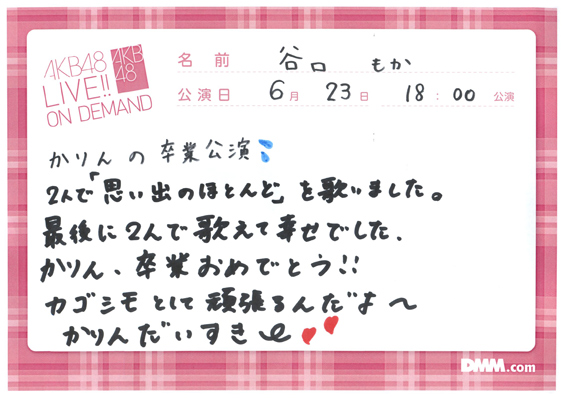 AKB48
LIVE!!
ON DEMAND
AKB
48
名前 谷口 もか
公演日 6月 23日 18:00 公演
かりんの卒業公演
2人で「思い出のほとんど」を歌いました。
最後に2人で歌えて幸せでした、
かりん、卒業おめでとう!!
カゴシモとして頑張るんだよ〜
かりんだいすき
DMM.com